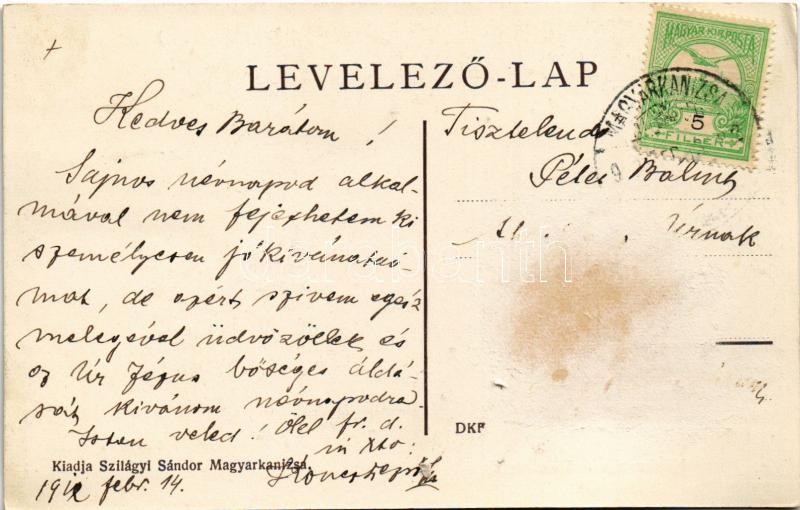 LEVELEZŐ-LAP
MAGYAR KIR. POSTA
MAGYARKANIZSA
5
FILLER
Kedves Barátom!
Sajnos névnapod alkal-
mával nem fejezhetem ki
személyesen jókivánatai-
mat, de azért szivem egész
melegével üdvözöllek és
az Úr Jézus bőséges áldá-
sát kivánom névnapodra.
Isten veled! Ölel fr. d.
in Xto:
Kiadja Szilágyi Sándor Magyarkanizsa.
1912 febr. 14.
Tisztelend
Péter Bálint
Úrnak
DKF
darabanth